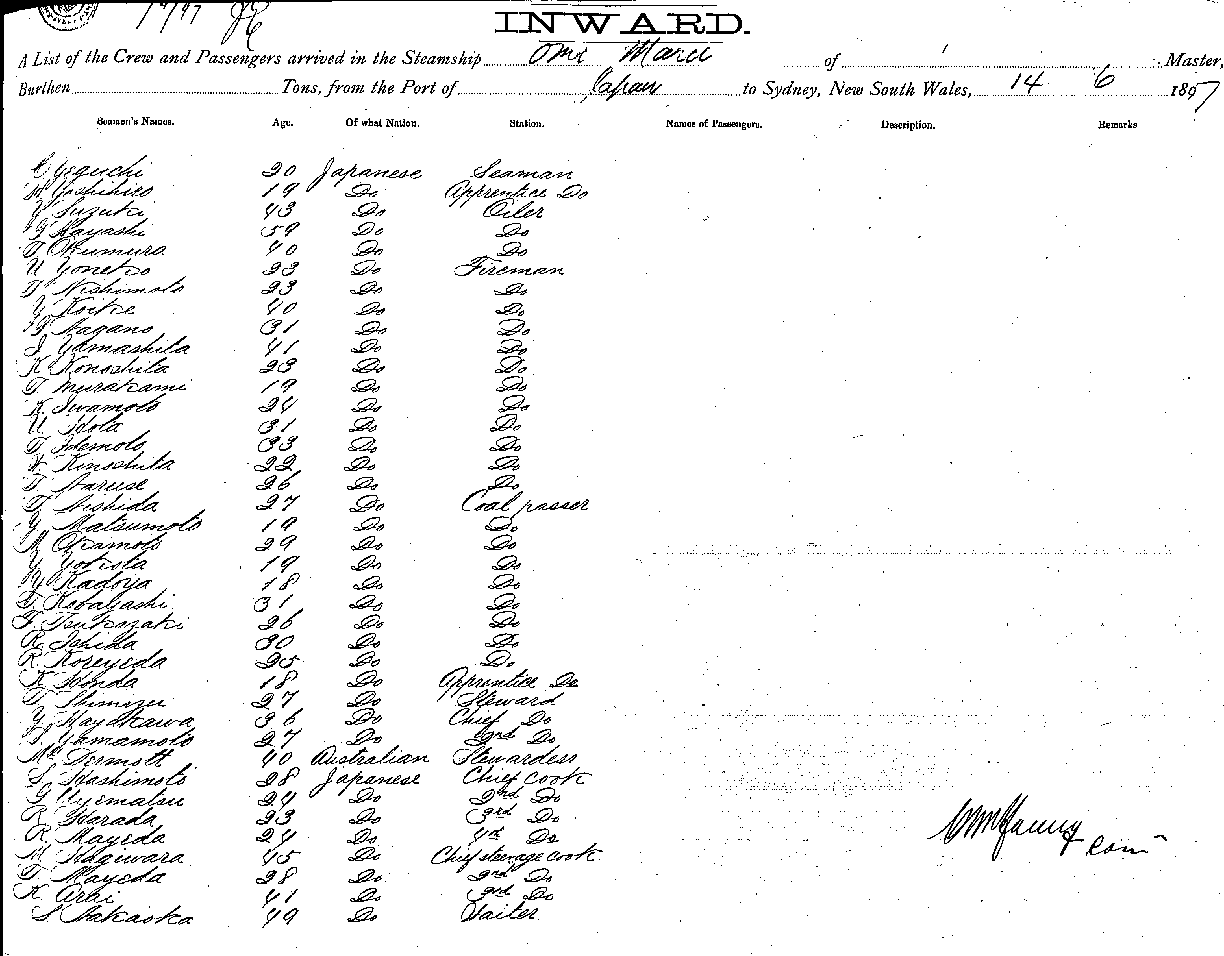 INWARD.
A List of the Crew and Passengers arrived in the Steamship Omi Maru of Master,
Burthen Tons, from the Port of Japan to Sydney, New South Wales, 14 6 1897
Seamen's Names. Age. Of what Nation. Station. Names of Passengers. Description. Remarks
Yeguchi 20 Japanese Seaman
Yoshihiro 19 Do Apprentice Do
Y Suzuki 43 Do Oiler
Hayashi 59 Do Do
T Okumura 40 Do Do
U Yoneto 23 Do Fireman
T Nishimoto 23 Do Do
Y Koike 40 Do Do
T Nagano 31 Do Do
I Yamashita 41 Do Do
K Konoshita 23 Do Do
T Murakami 19 Do Do
K Iwamoto 24 Do Do
U Idota 31 Do Do
T Idemoto 33 Do Do
Kinoshita 22 Do Do
T Naruse 26 Do Do
T Nishida 27 Do Coal passer
Y Matsumoto 19 Do Do
M Okamoto 29 Do Do
Y Yokota 19 Do Do
Y Kadoya 18 Do Do
Kobayashi 31 Do Do
F Tsukazaki 26 Do Do
R Ishida 30 Do Do
R Koreyeda 25 Do Do
K Honda 18 Do Apprentice Do
T Shimizu 27 Do Steward
Y Hayakawa 36 Do Chief Do
T Yamamoto 27 Do 2nd Do
Mc Dermott 40 Australian Stewardess
S Hashimoto 28 Japanese Chief Cook
G Uyematsu 24 Do 2nd Do
R Harada 23 Do 3rd Do
R Mayeda 24 Do 4th Do
M Hagiwara 45 Do Chief steerage cook
T Mayeda 28 Do 2nd Do
K Arai 41 Do 3rd Do
S Nakaoka 49 Do Waiter